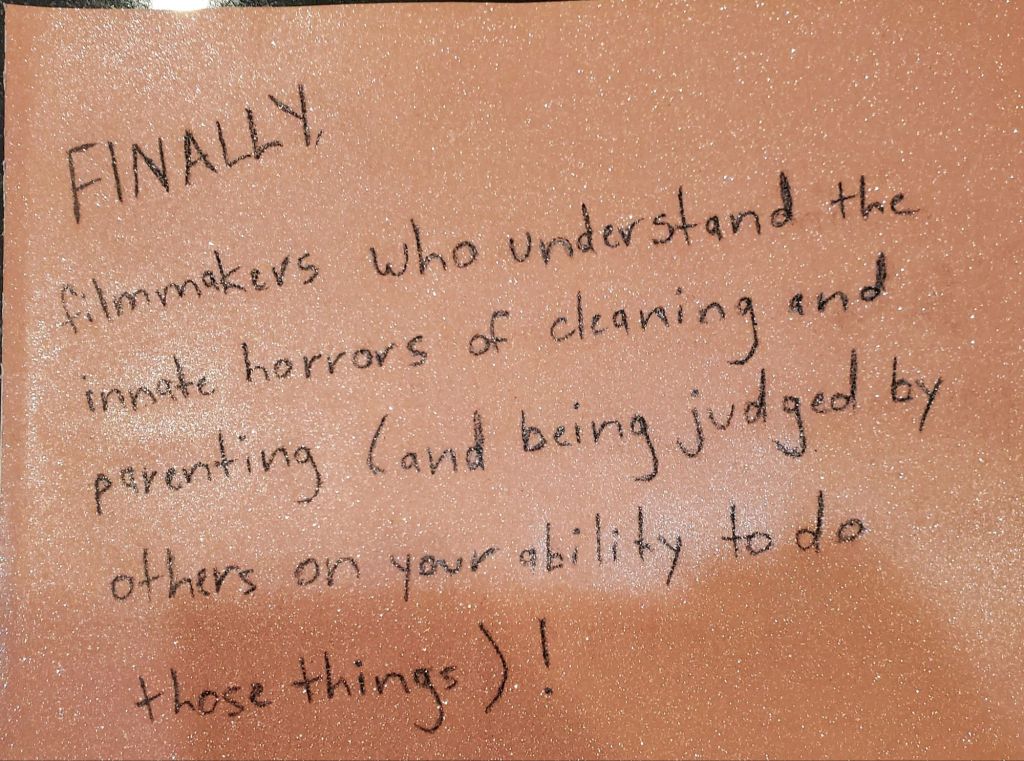 FINALLY,
filmmakers who understand the
innate horrors of cleaning and
parenting (and being judged by
others on your ability to do
those things)!